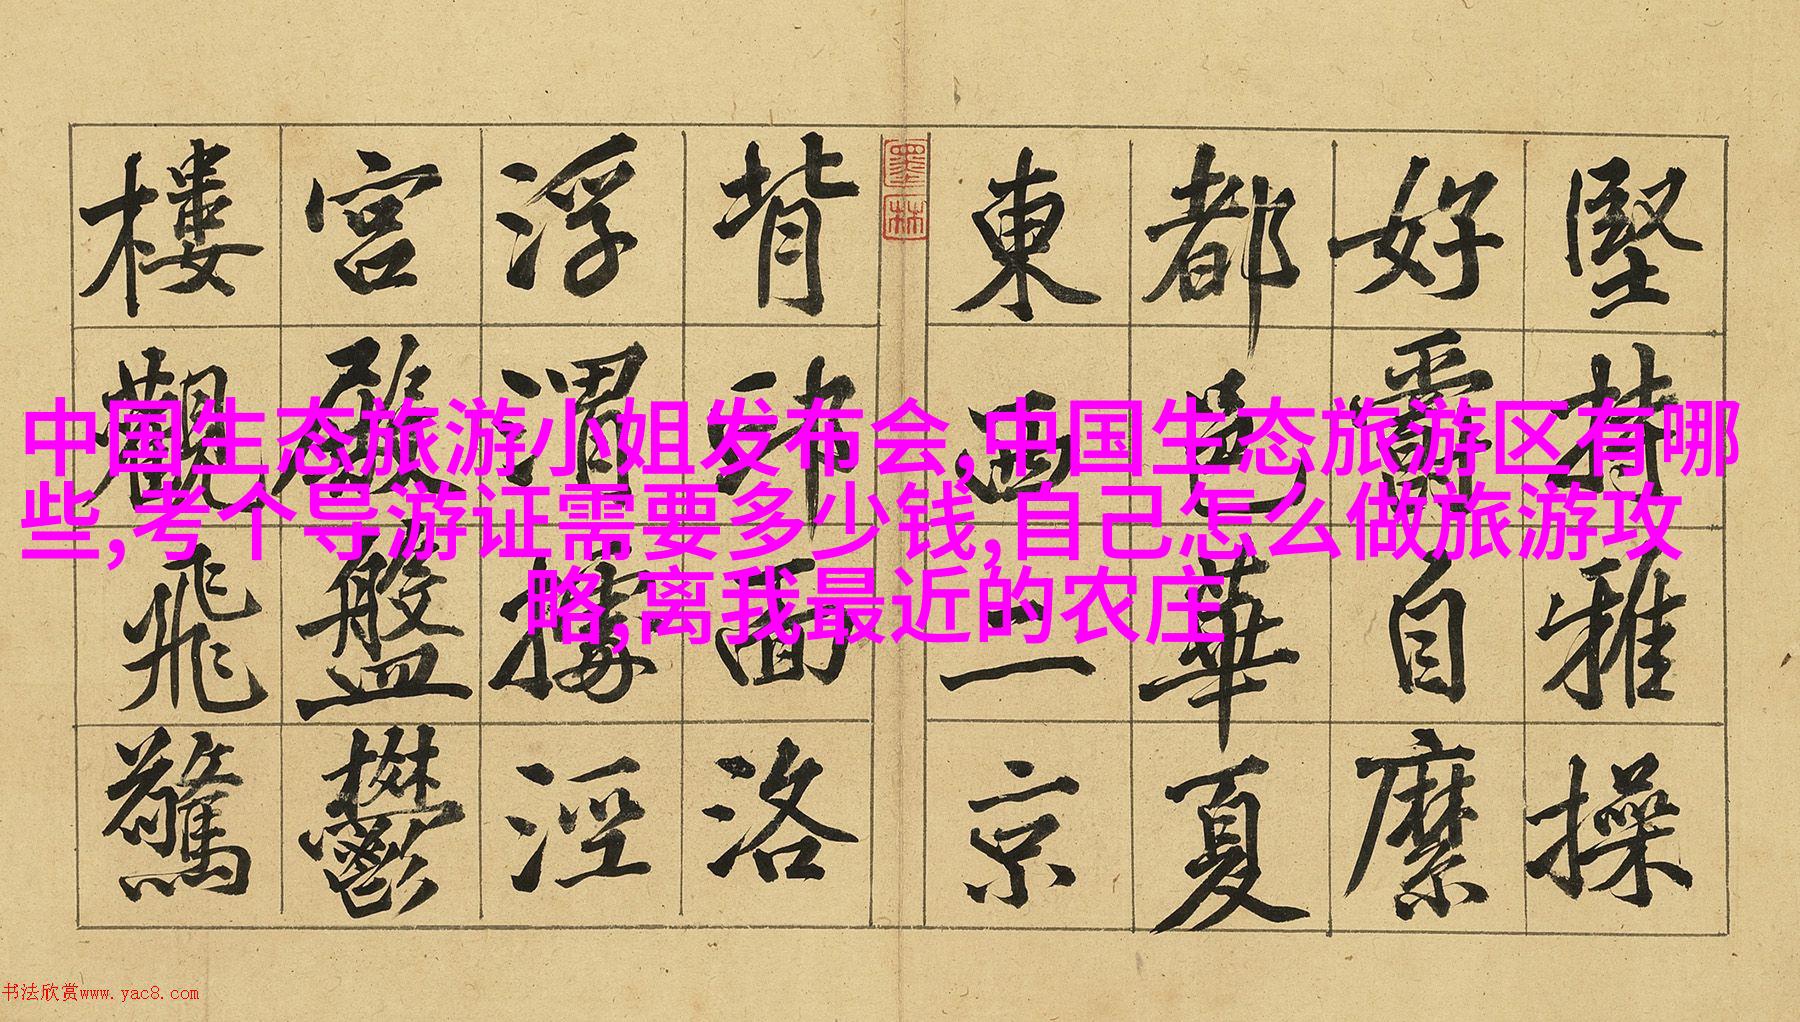 堅持雅操
好爵自縻
都邑華夏
東西二京
墨林
背邙面洛
浮渭據涇
宮殿盤鬱
樓觀飛驚
中国生态旅游小姐发布会,中国生态旅游区有哪
些,考个导游证需要多少钱,自己怎么做旅游攻
略,离我最近的农庄
书法欣赏www.yac8.com